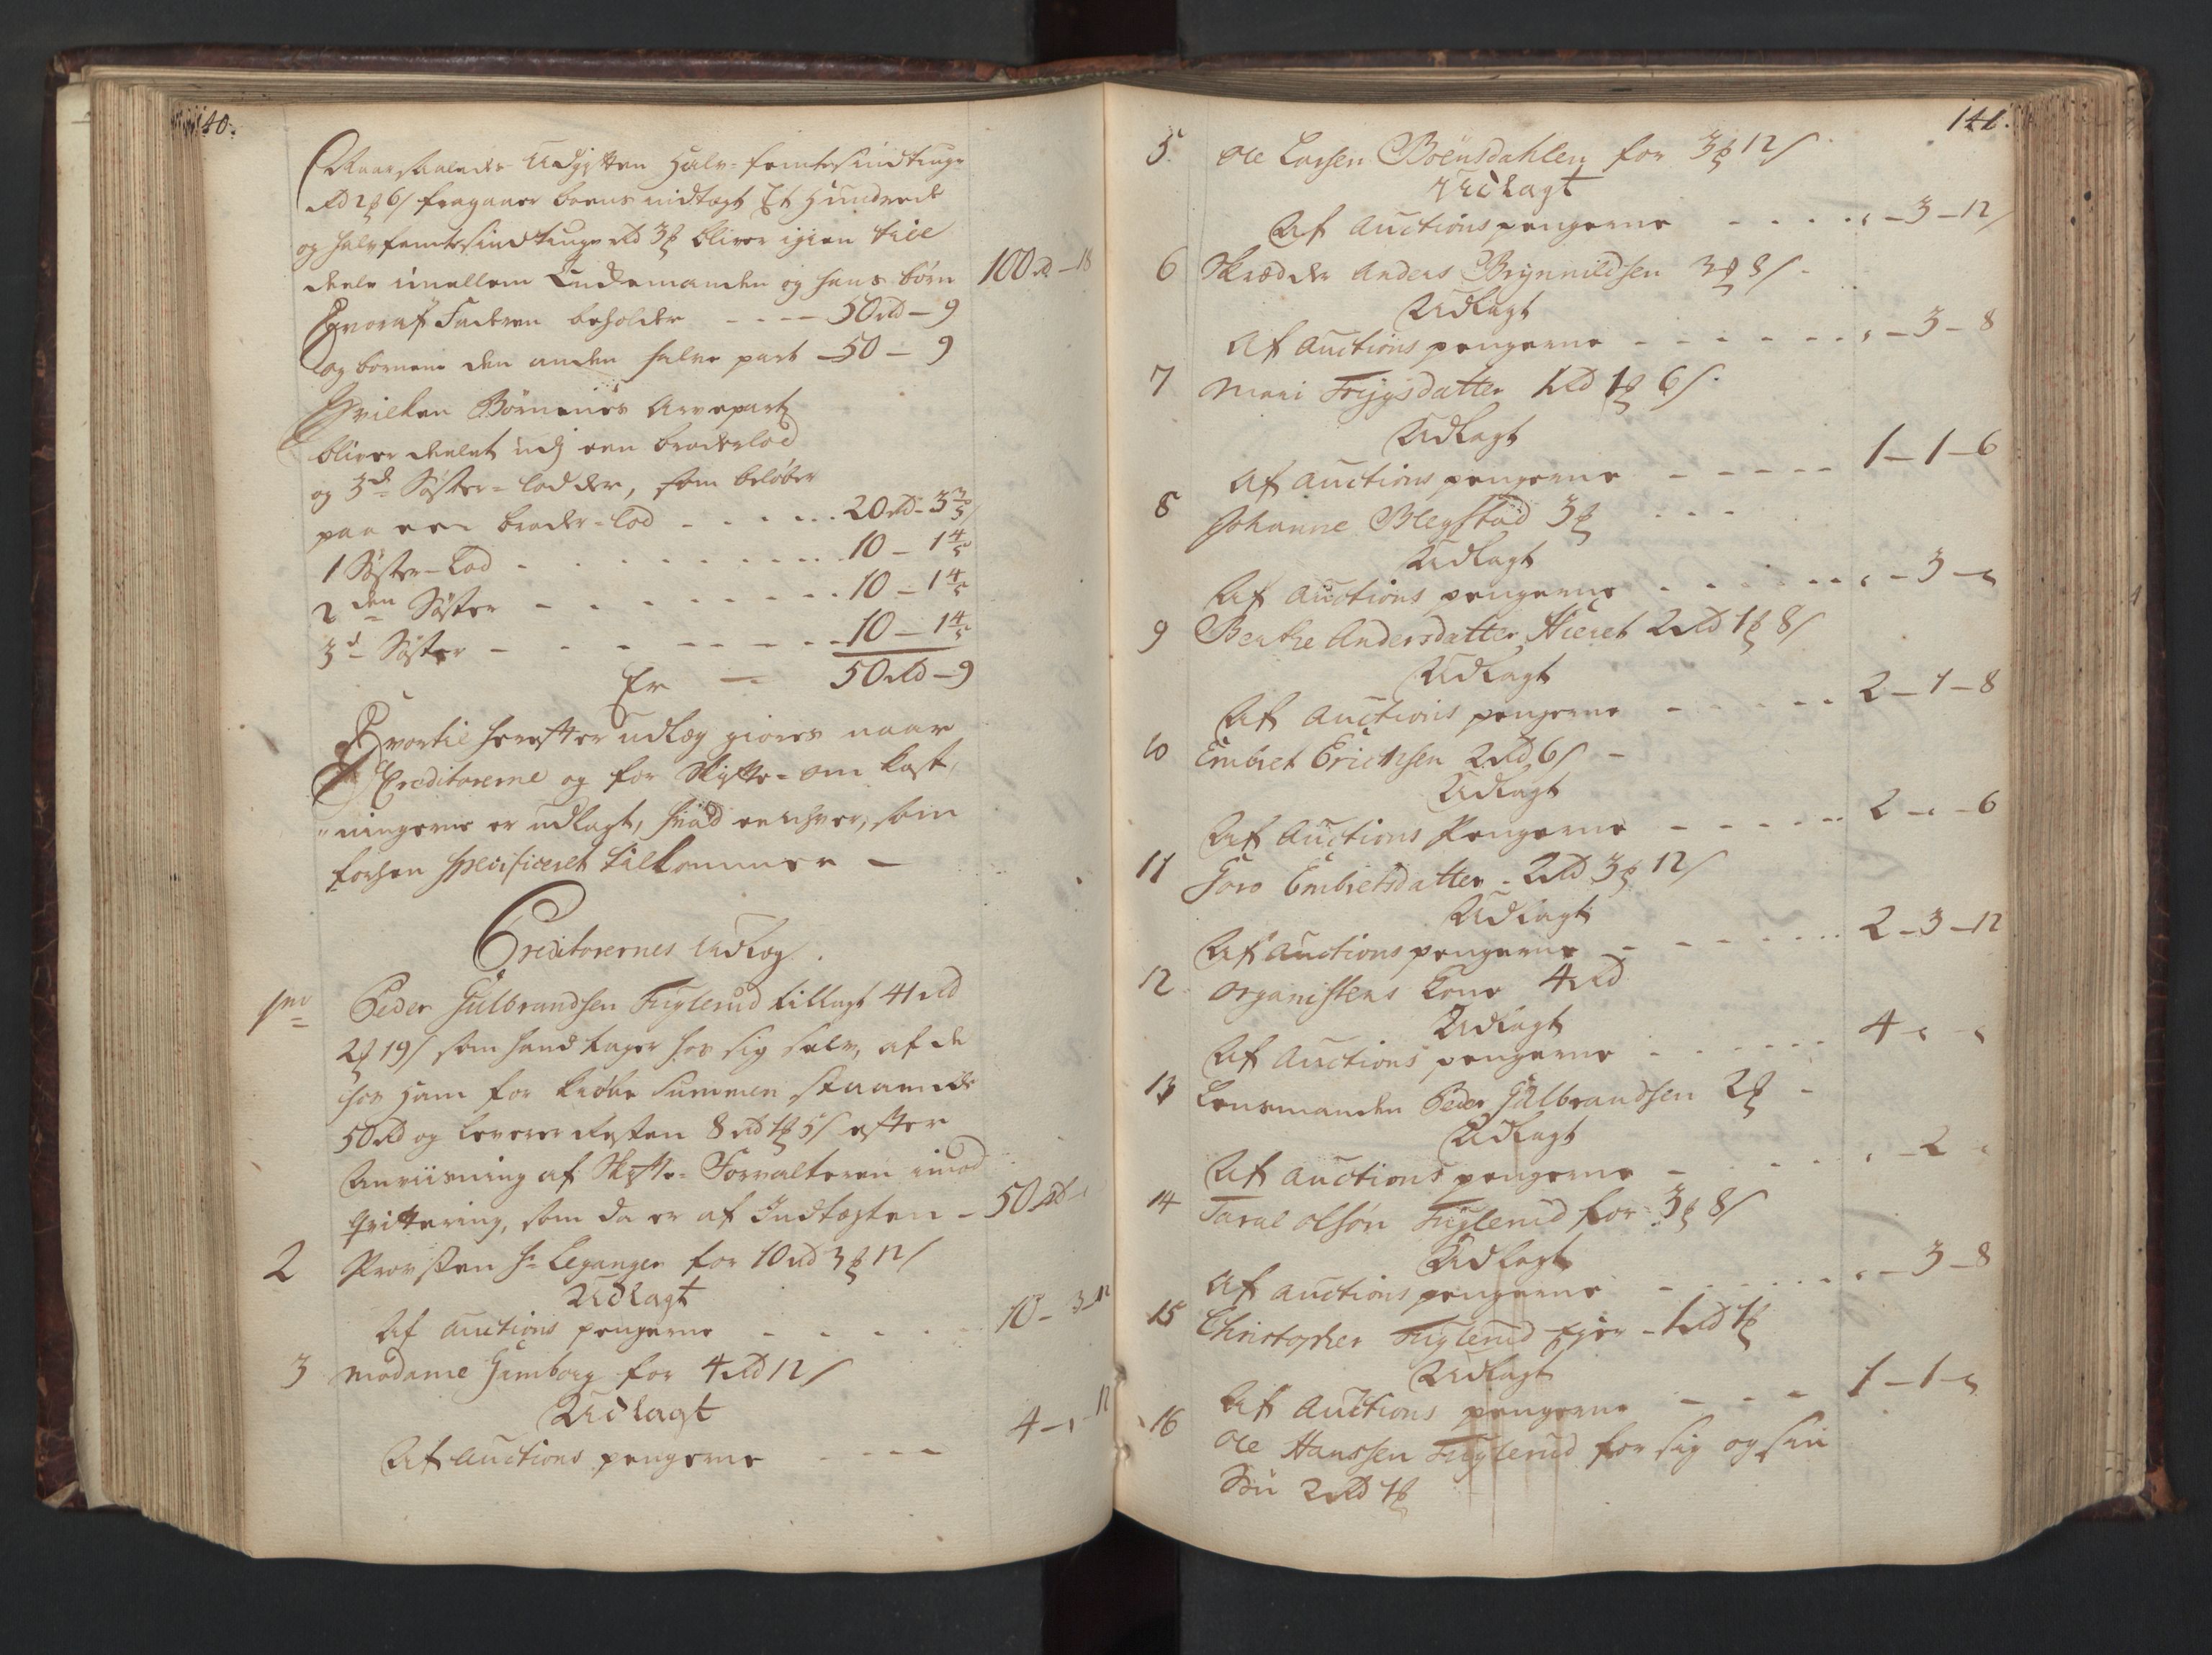 140.
Naar saaledes Udgiften Halv-femtesindstiuge
Rd 2 ß 6 s fragaaer boens indtægt Et Hundrede
og halvfemtesindstiuge Rd 3 bliver igien till
deele imellem Enckemanden og hans børn 100 Rd - 18
Hvoraf Faderen beholder - - - 50 Rd - 9
og børnene den anden halve part - 50 - 9
Hvilken Børnenes Arvepart
bliver deelet udj een broderlod
og 3de Søster-lodder, som beløber
paa een broder-lod - - - - 20 Rd - 3 3/5
1 Søster-Lod - - - - 10 - 1 4/5
2den Søster - - - - 10 - 1 4/5
3d Søster - - - - 10 - 1 4/5
Er - 50 Rd - 9
Hvortil herefter udlæg giøres naar
Creditorerne og for Skifte-om kost,
"ningerne er udlagt, hvad enhver, som
forhen specificeret tilkommer -
Creditorernes Udlæg.
1mo Peder Gulbrandsen Fuglerud tillagt 41 Rd
2 19 s som hand tager hos sig selv, af de
hos ham for kiøbe summen staaende
50 Rd og leverer Resten 8 Rd 1 5 s efter
Anviisning af Skifte-Forvalteren imod
Qvittering, som da er af Indtægten - 50 Rd
2 Provsten Hr Leganger for 10 Rd 3 12 s
Udlagt
Af auctions pengerne - - - - 10 - 3 - 12
3 Madame Hamborg for 4 Rd 12 s
Udlagt
Af auctions pengerne - - - 4 - " - 12
141.
5. Ole Larsen Boënsdahlen for 3 12 s
Udlagt
Af auctions pengerne - - - - " - 3 - 12
6 Skrædder Anders Brynnildsen 3 8 s -
Udlagt
Af auctions pengerne - - - - - " - 3 - 8
7 Mari Trygsdatter 1 Rd 1 6 s.
Udlagt
Af auctions pengerne - - - - - 1 - 1 - 6
8 Johanne Blegstad 3 - - -
Udlagt
Af auctions pengerne - - - - - " - 3 - "
9 Berthe Andersdatter Hieret 2 Rd 1 8 s
Udlagt
Af auctions pengerne - - - - - 2 - 1 - 8
10 Embret Erichsen 2 Rd 6 s -
Udlagt
Af Auctions Pengerne - - - - - 2 - " - 6
11 Goro Embretsdatter - 2 Rd 3 12 s
Udlagt
Af auctions pengerne - - - - - 2 - 3 - 12
12 Organistens kone 4 Rd
Udlagt
Af Auctions pengerne - - - - - 4 " "
13 Lensmanden Peder Gulbrandsen 2 -
Udlagt
Af auctions pengerne - - - - " - 2 "
14 Taral Olsøn Fuglerud for 3 8 s
Udlagt
Af auctions pengerne - - - - - " - 3 - 8
15 Christopher Fuglerud Eier - 1 Rd 1
Udlagt
Af Auctions pengerne - - - 1 - 1 - "
16 Ole Hanssen Fuglerud for sig og sin
Søn 2 Rd 1